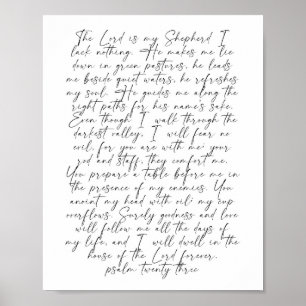 The Lord is my Shepherd I
lack nothing. He makes me lie
down in green pastures, he leads
me beside quiet waters, he refreshes
my soul. He guides me along the
right paths for his name's sake.
Even though I walk through the
darkest valley, I will fear no
evil, for you are with me; your
rod and staff, they comfort me.
You prepare a table before me in
the presence of my enemies. You
anoint my head with oil; my cup
overflows. Surely goodness and love
will follow me all the days of
my life, and I will dwell in the
house of the Lord forever.
psalm twenty three